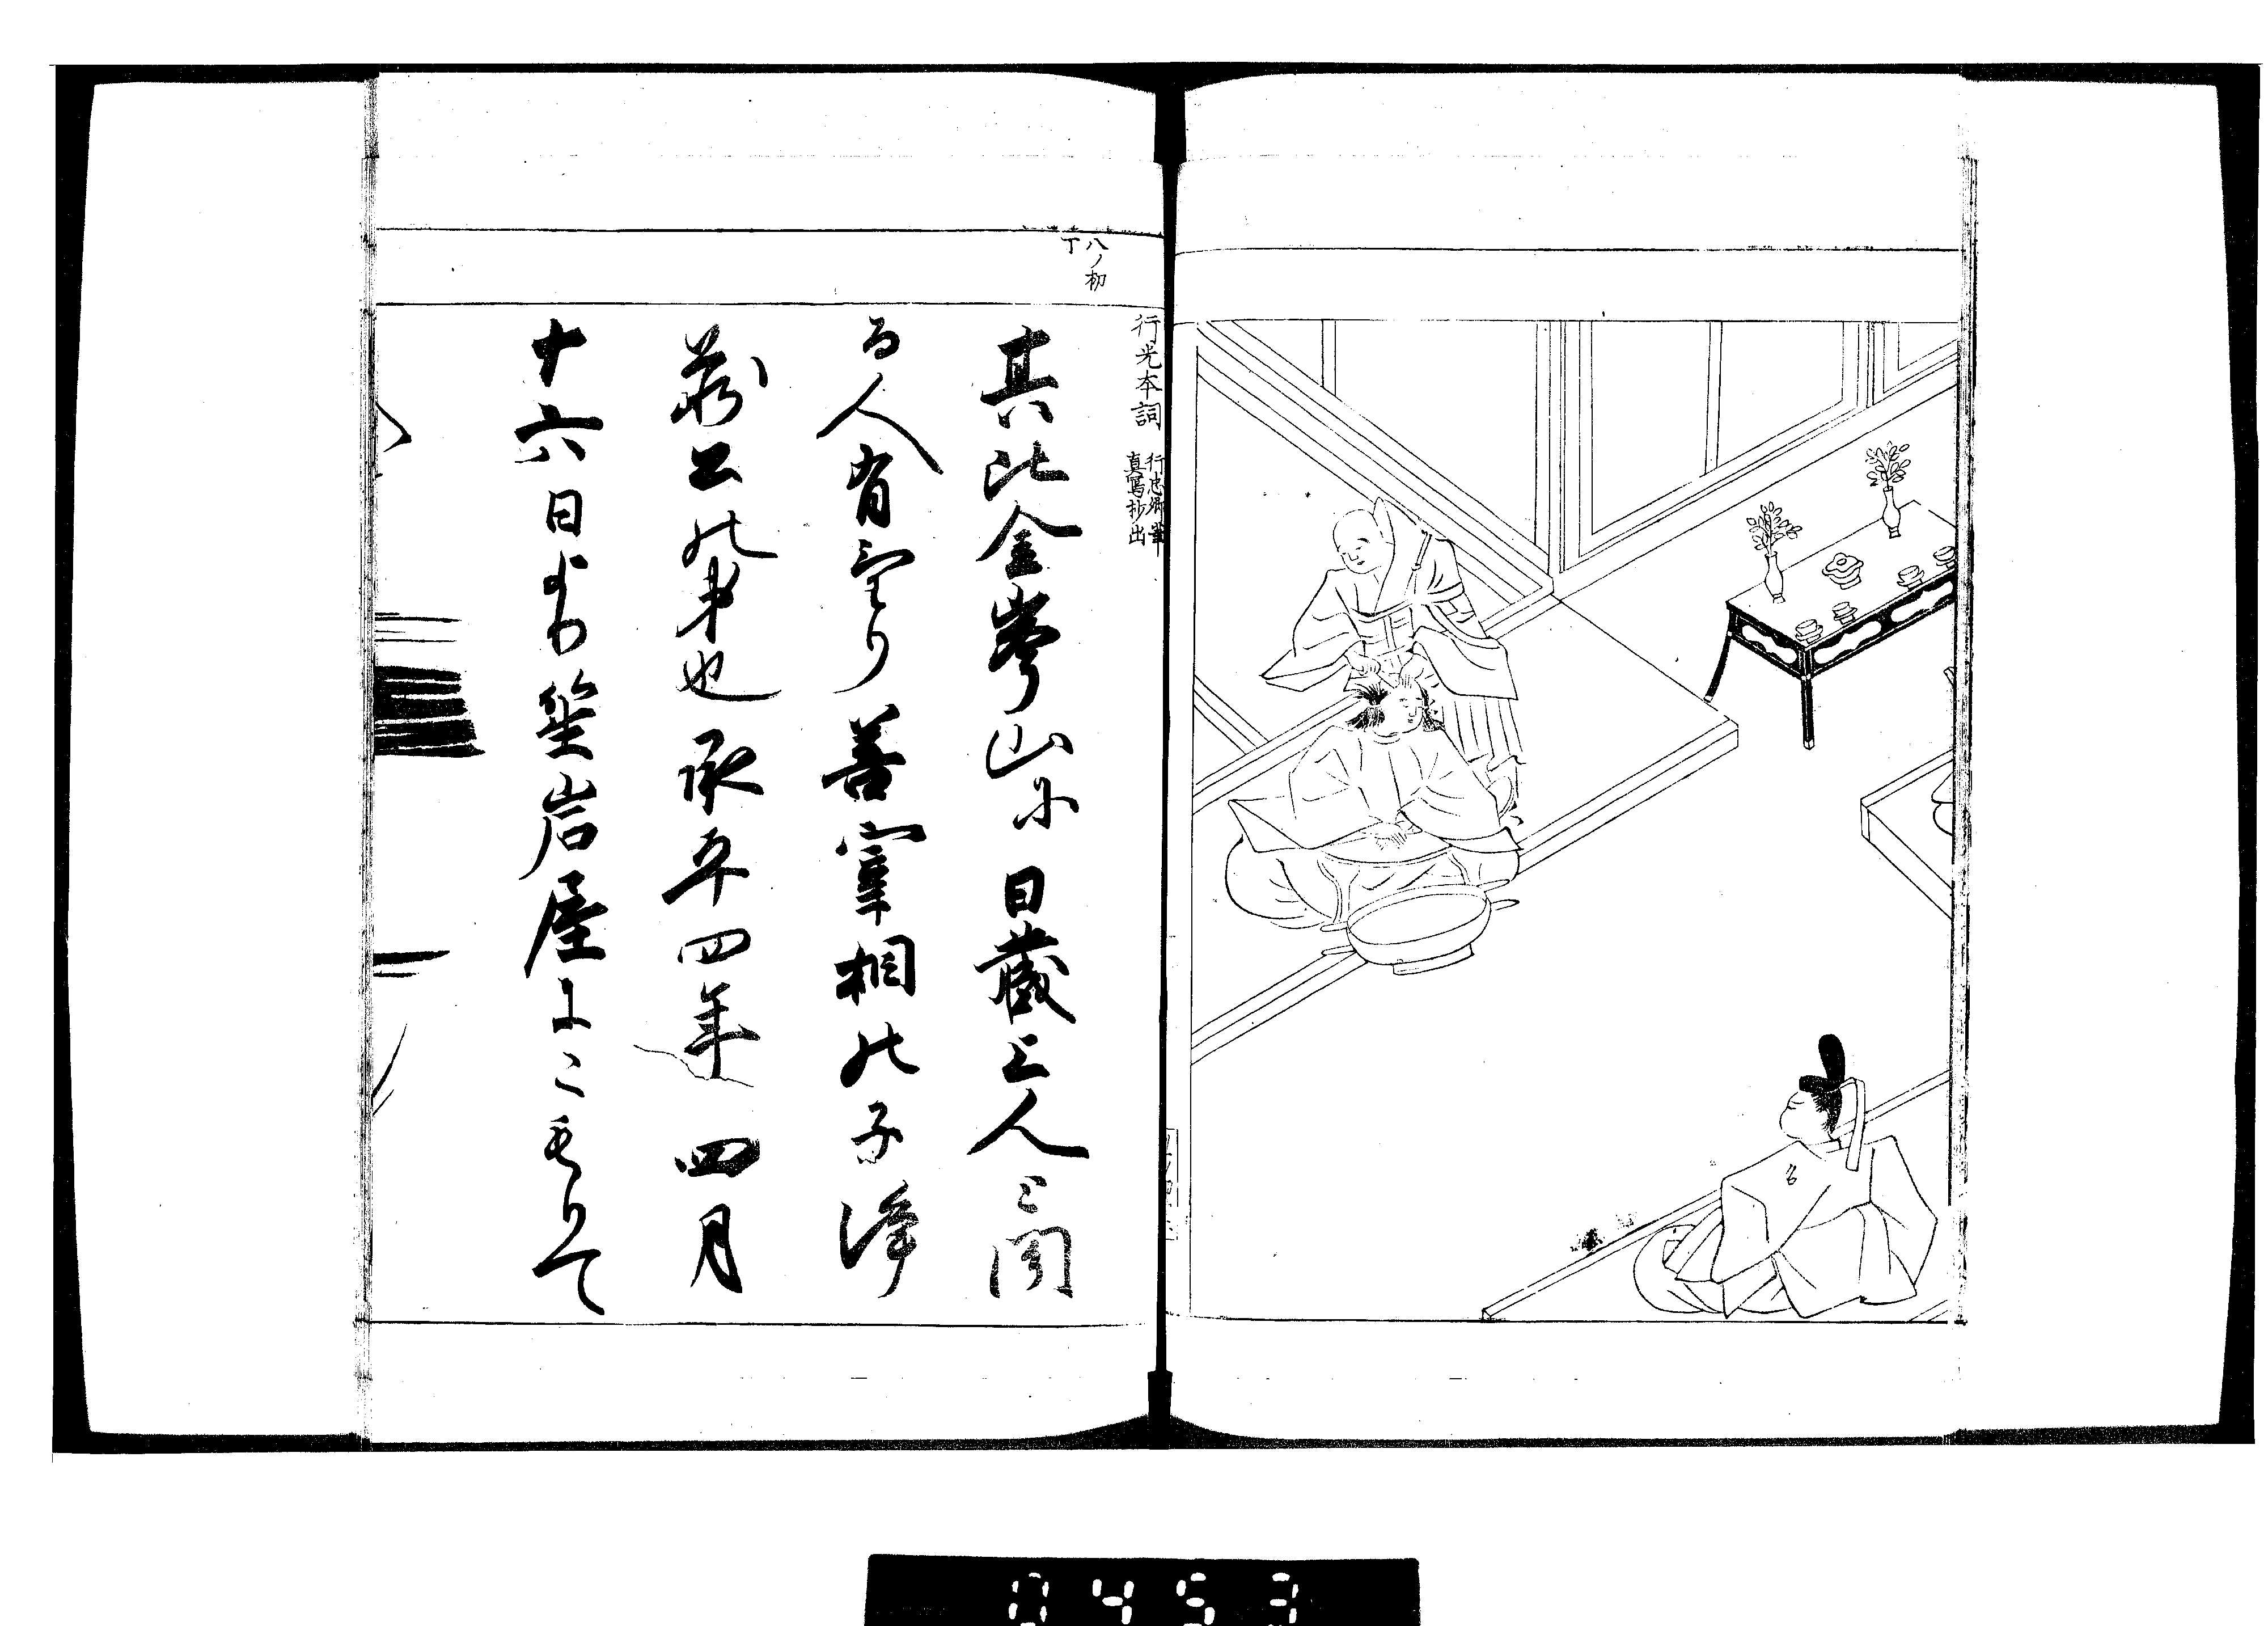 行光本詞 行忠卿筆
真写抄出
八ノ初
丁
其比金峯山に日蔵上人と聞
る人有けり善宰相の子浄
蔵公の弟也承平四年四月
十六日より笙岩屋にこもりて
0453